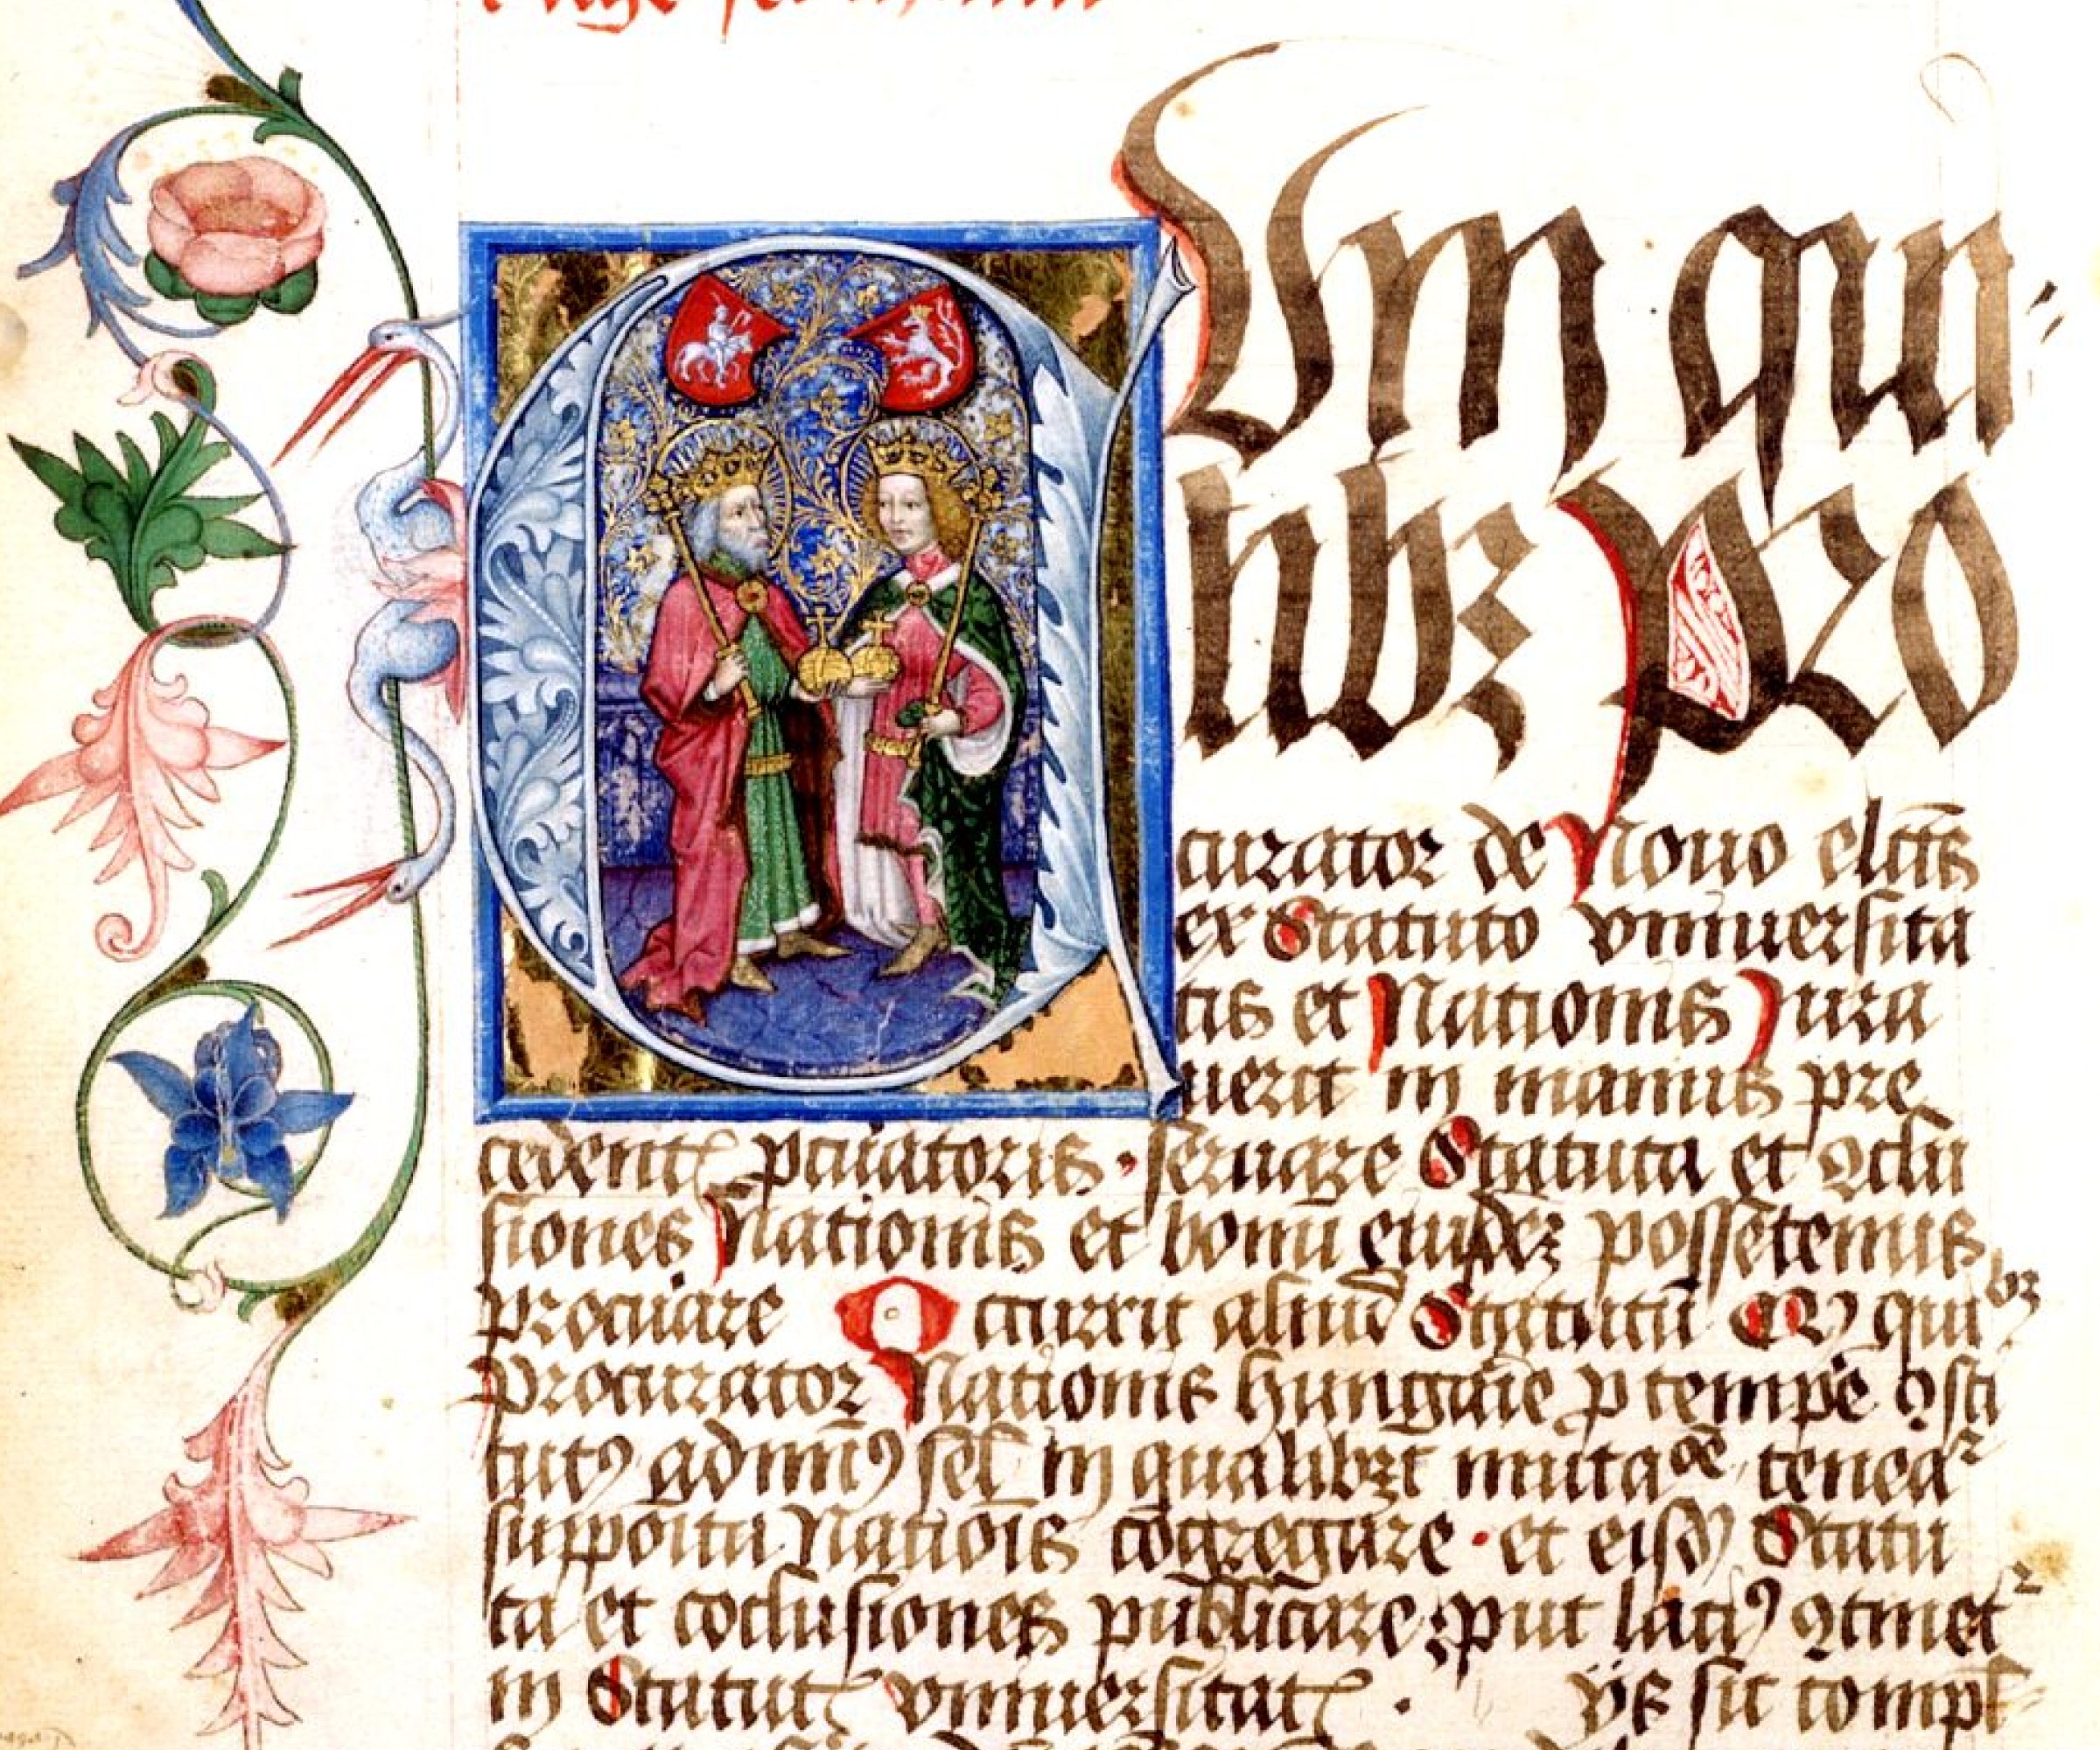 Vm qui
libꝫ pro
curator de Nouo elctꝰ
ex Statuto vniuersita
tis et Nationis Jura
uerit in manus pre
cedentꝭ pcuratoris · seruare Statuta et ꝯclu
siones Nationis et bonū eiusdeꝫ posse tenus
procurare Occurrit aliud Statutū qui
procurator Nationis hungarie p tempe ꝯsti
tutꝰ adminꝰ sel in qualibꝫt mutaōe tenea
supposita Natiōis cōgregare · et eisdē Statu
ta et cōclusiones publicare : put latiꝰ ꝯtinet
in Statutꝭ vniuersitatꝭ · sit compl